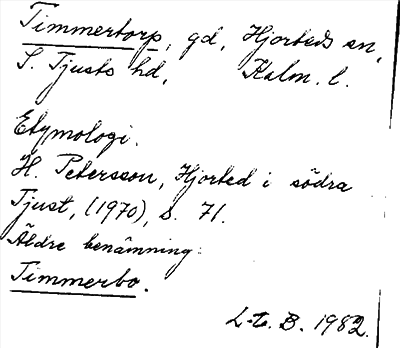 Timmertorp, gd, Hjorteds sn,
S. Tjusts hd, Kalm. l.
Etymologi.
H. Petersson, Hjorted i södra
Tjust, (1970), s. 71.
Äldre benämning:
Timmerbo.
L-to. B. 1982.